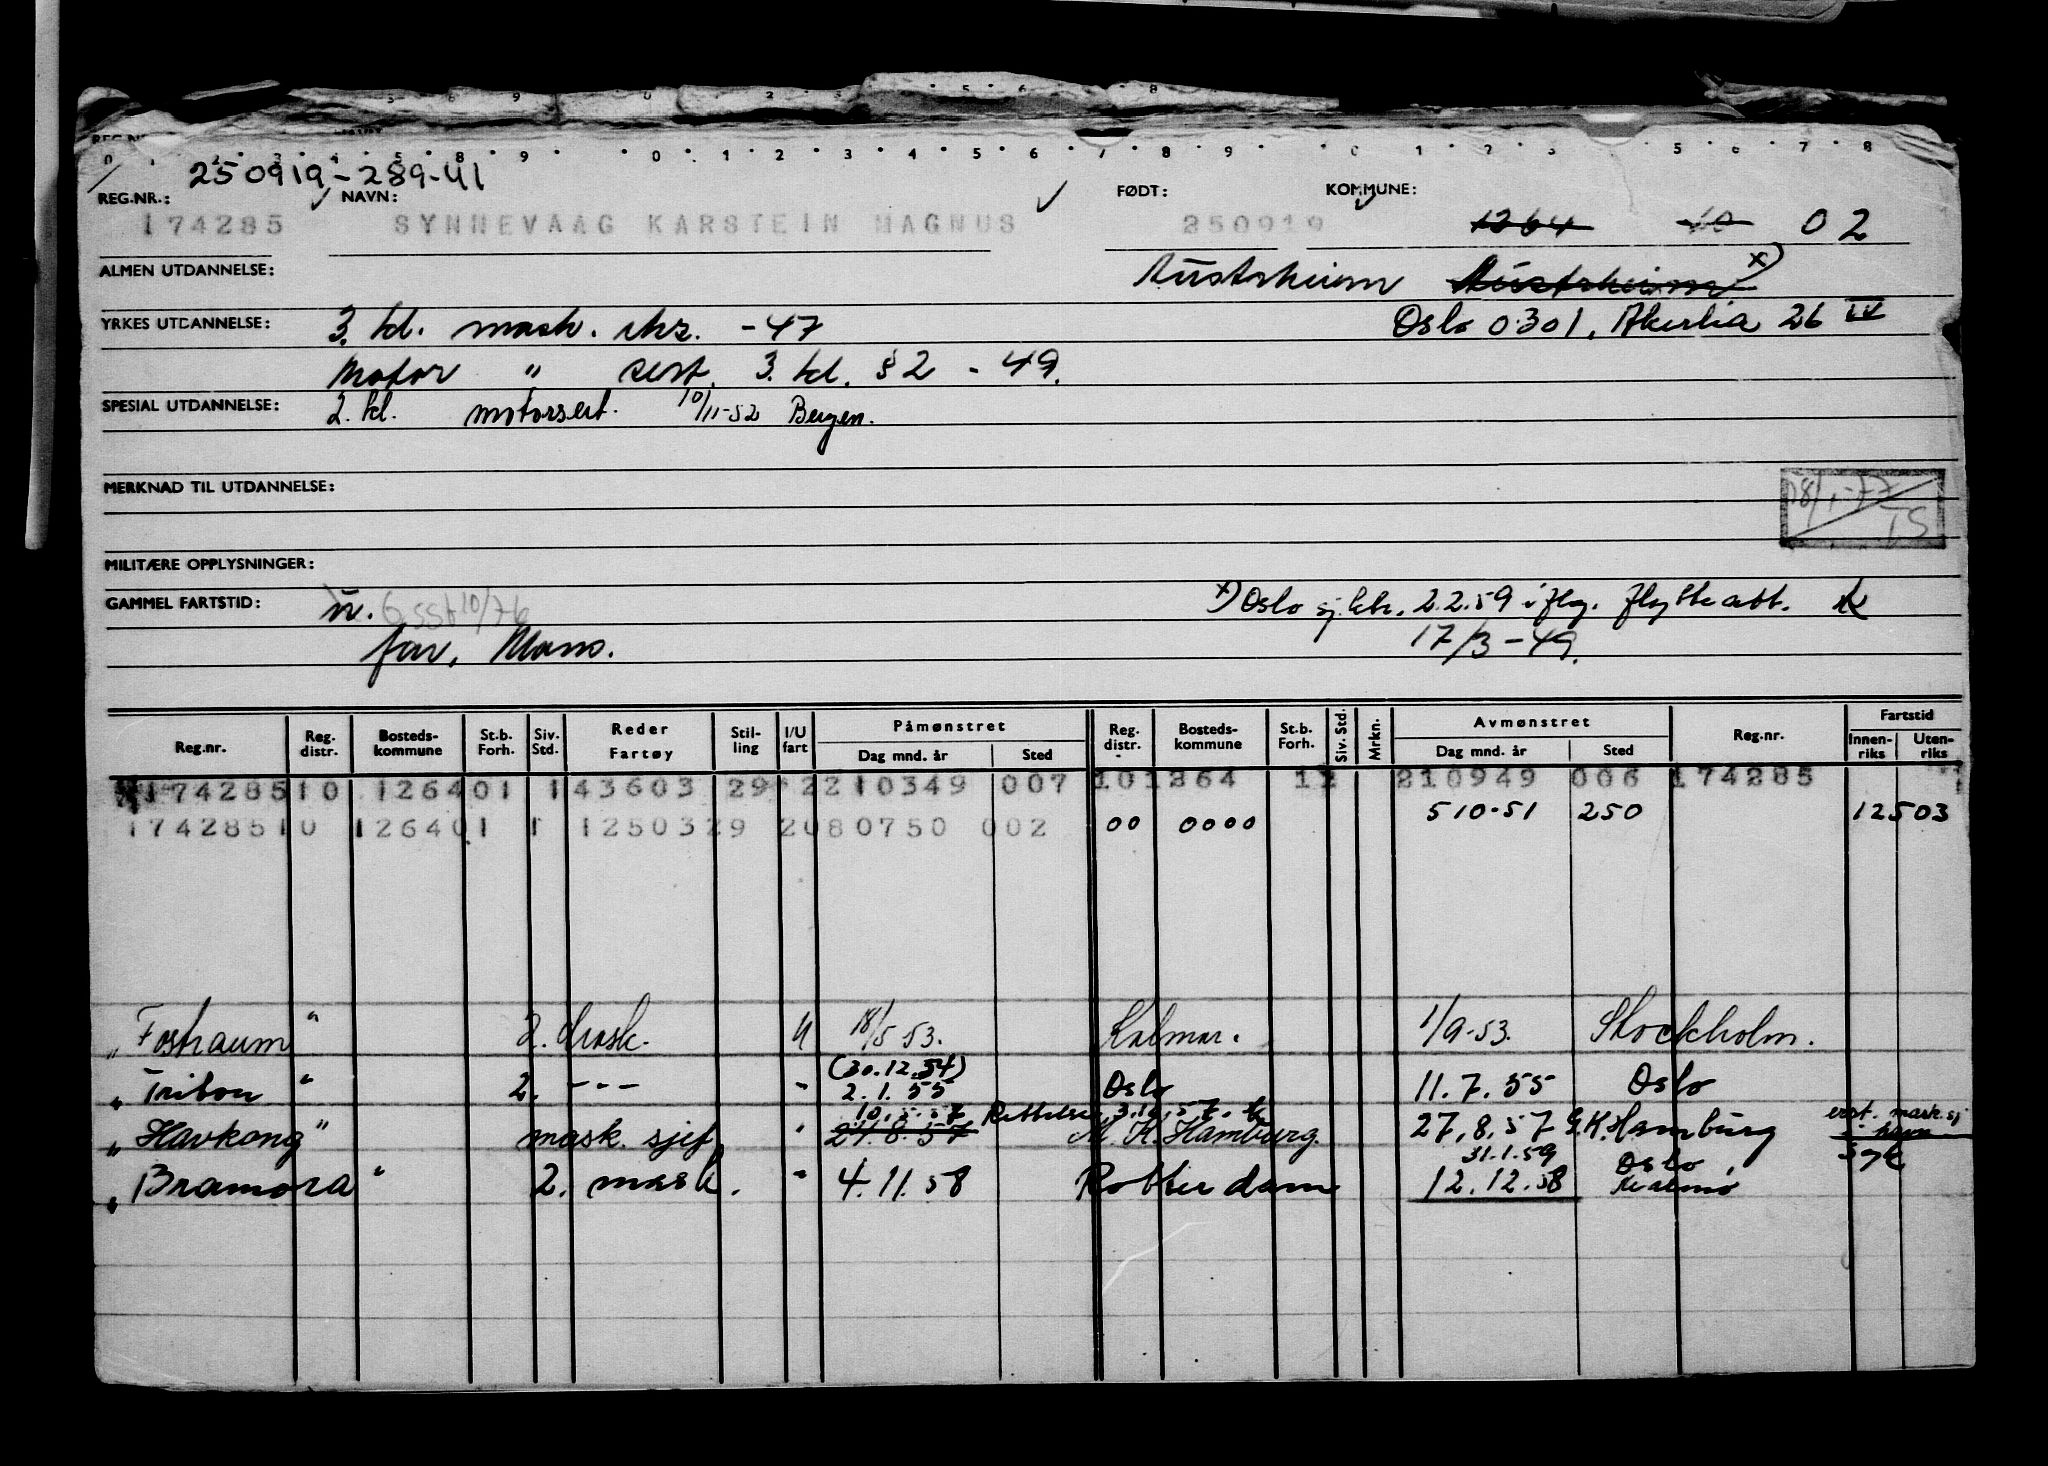 250919-289-41
REG.NR.: NAVN: FØDT: KOMMUNE:
174285 SYNNEVAAG KARSTEIN MAGNUS 250919 1264 10 02
ALMEN UTDANNELSE: Austrheim Austrheim x)
YRKES UTDANNELSE: 3. kl. mask. -47 Oslo 0301, Akerlia 26 IV
Motor " sert. 3. kl. §2 - 49.
SPESIAL UTDANNELSE: 2. kl. motorsert. 10/11-52 Bergen.
MERKNAD TIL UTDANNELSE:
18/1-77 TS
MILITÆRE OPPLYSNINGER:
GAMMEL FARTSTID: x) Oslo sj.ktr. 2.2.59 iflg. flytteatt.
far, Mons. 17/3-49.
Reg.nr. Reg. distr. Bosteds-kommune St.b. Forh. Siv. Std. Reder Fartøy Stil-ling I/U fart Påmønstret Dag mnd. år Sted Reg. distr. Bosteds-kommune St.b. Forh. Siv. Std. Mrkn. Avmønstret Dag mnd. år Sted Reg.nr. Fartstid Innen-riks Uten-riks
174285 10 1264 01 1 43603 29 2 210349 007 10 1264 11 210949 006 174285
174285 10 1264 01 1 12503 29 2 080750 002 00 0000 510-51 250 12503
" Fostraum " 2. mask. U 18/5 53. Kalmar. 1/9-53. Stockholm.
" Triton " 2. --- " (30.12.54) 2.1.55 Oslo 11.7.55 Oslo
" Havkong " mask. sjef " 10.5.57 24.8.57 Rettelse 3.10.57. G.K. Hamburg. 27.8.57 G.K. Hamburg erst. mask.sj i havn
" Bramora " 2. mask. " 4.11.58 Rotterdam 31.1.59 Oslo 12.12.58 Syk